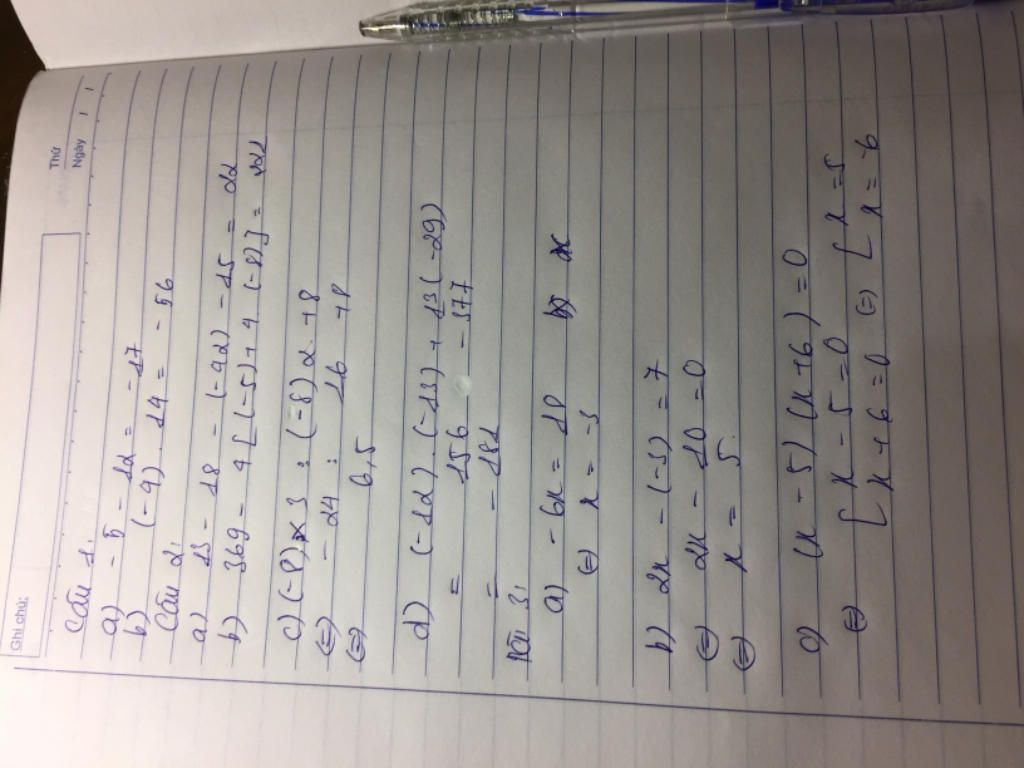 Ghi chú:
Thứ
Ngày
Câu 1:
a) - 5 - 12 = - 17
b) (-4) . 14 = - 56
Câu 2:
a) 13 - 18 - (-42) - 15 = 22
b) 369 - 4 [ (-5) + 4 (-8) ] =
c) (-8) x 3 : (-8) 2 + 8
(=) - 24 : 16 + 8
(=) 6,5
d) (-12) . (-13) + 13 (-29)
= 156 - 377
=
Câu 3:
a) - 6x = 18
(=) x = -3
b) 2x - (-3) = 7
(=) 2x - 10 = 0
(=) x = 5
c) (x - 5) (x + 6) = 0
(=) [ x - 5 = 0 (=) [ x = 5
[ x + 6 = 0 [ x = -6